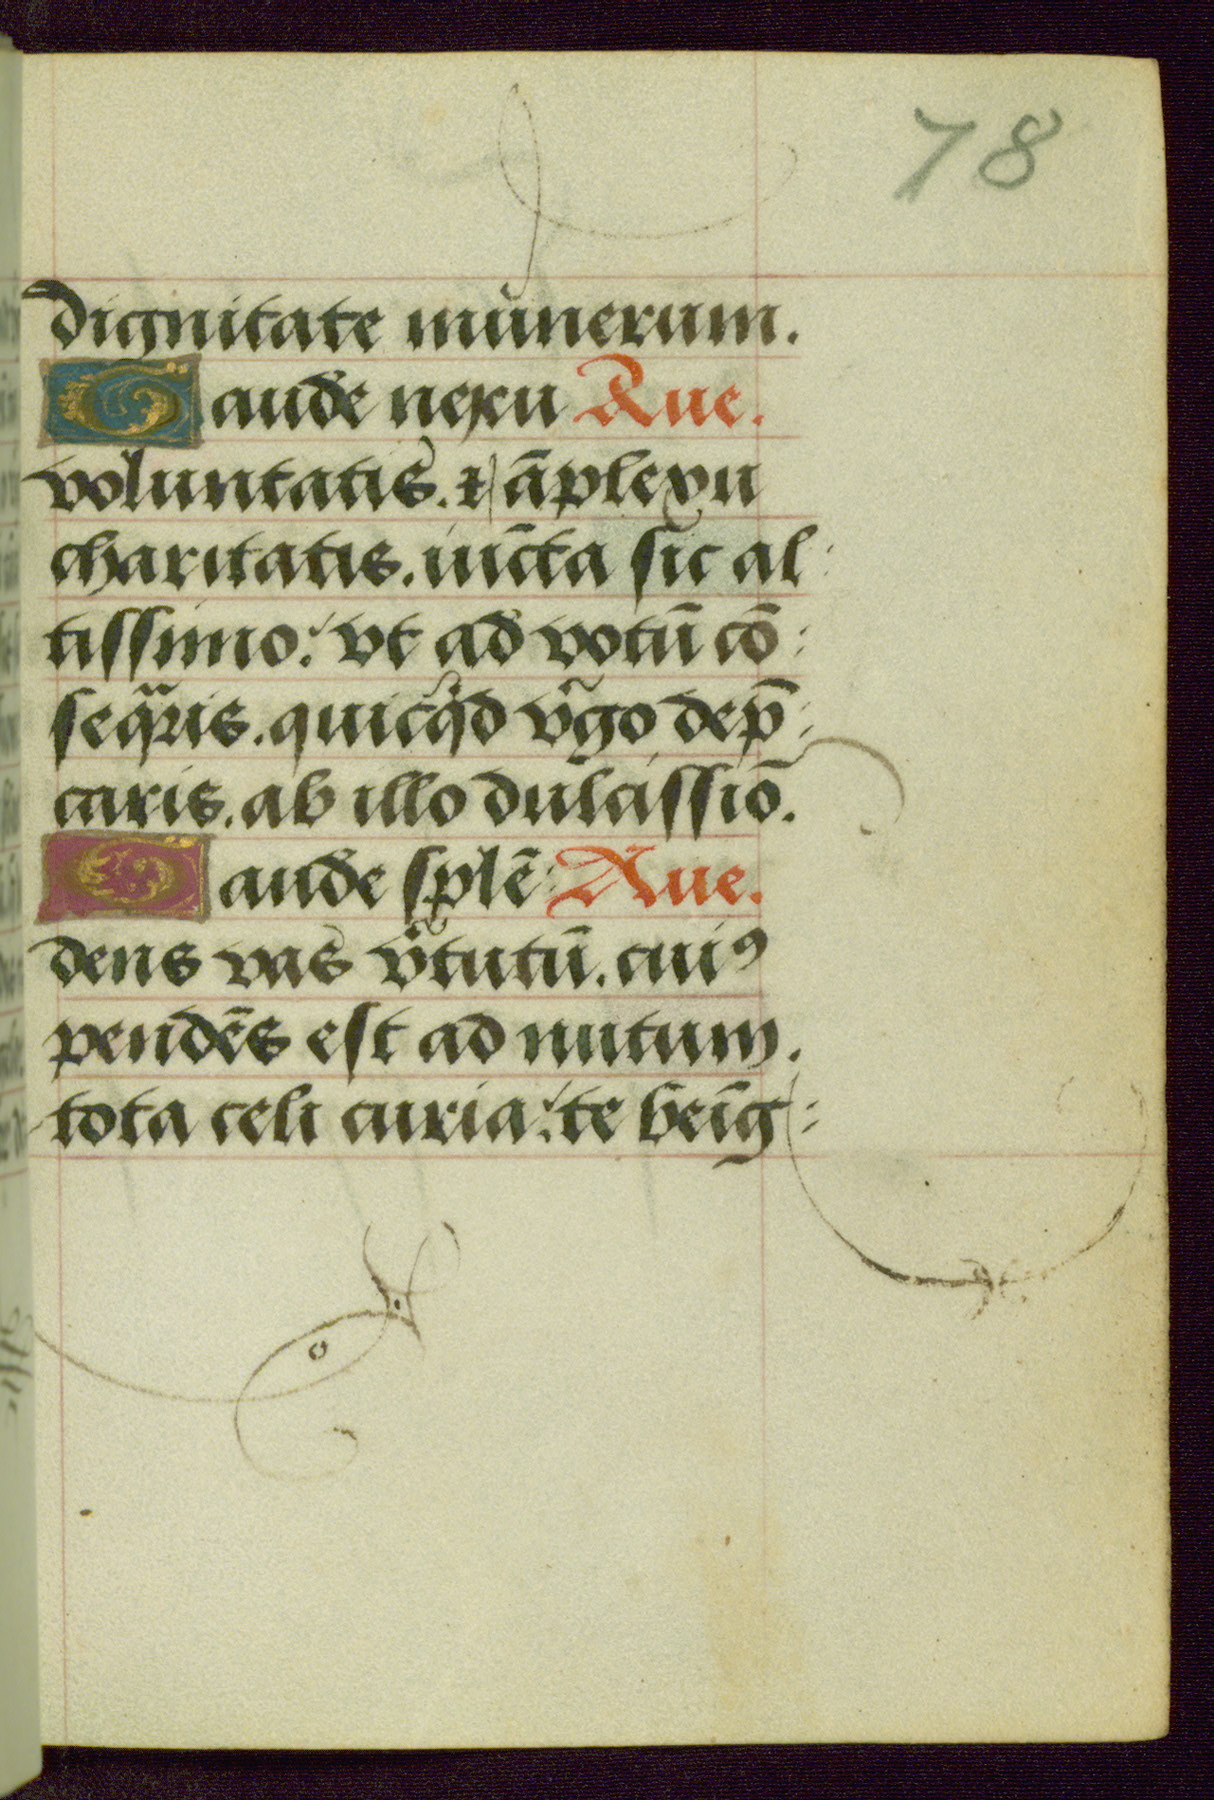 78
dignitate munerum.
Gaude nexu Aue.
voluntatis. ⁊ āplexu
charitatis. iūcta sic al:
tissimo: vt ad votū cō:
seqͣris. quicq̇d v̾go dep̄:
caris. ab illo dulcissīo.
Gaude splē: Aue.
dens vas v̾tutū. cuiꝰ
pendēs est ad nutum.
tota celi curia: te beīg: